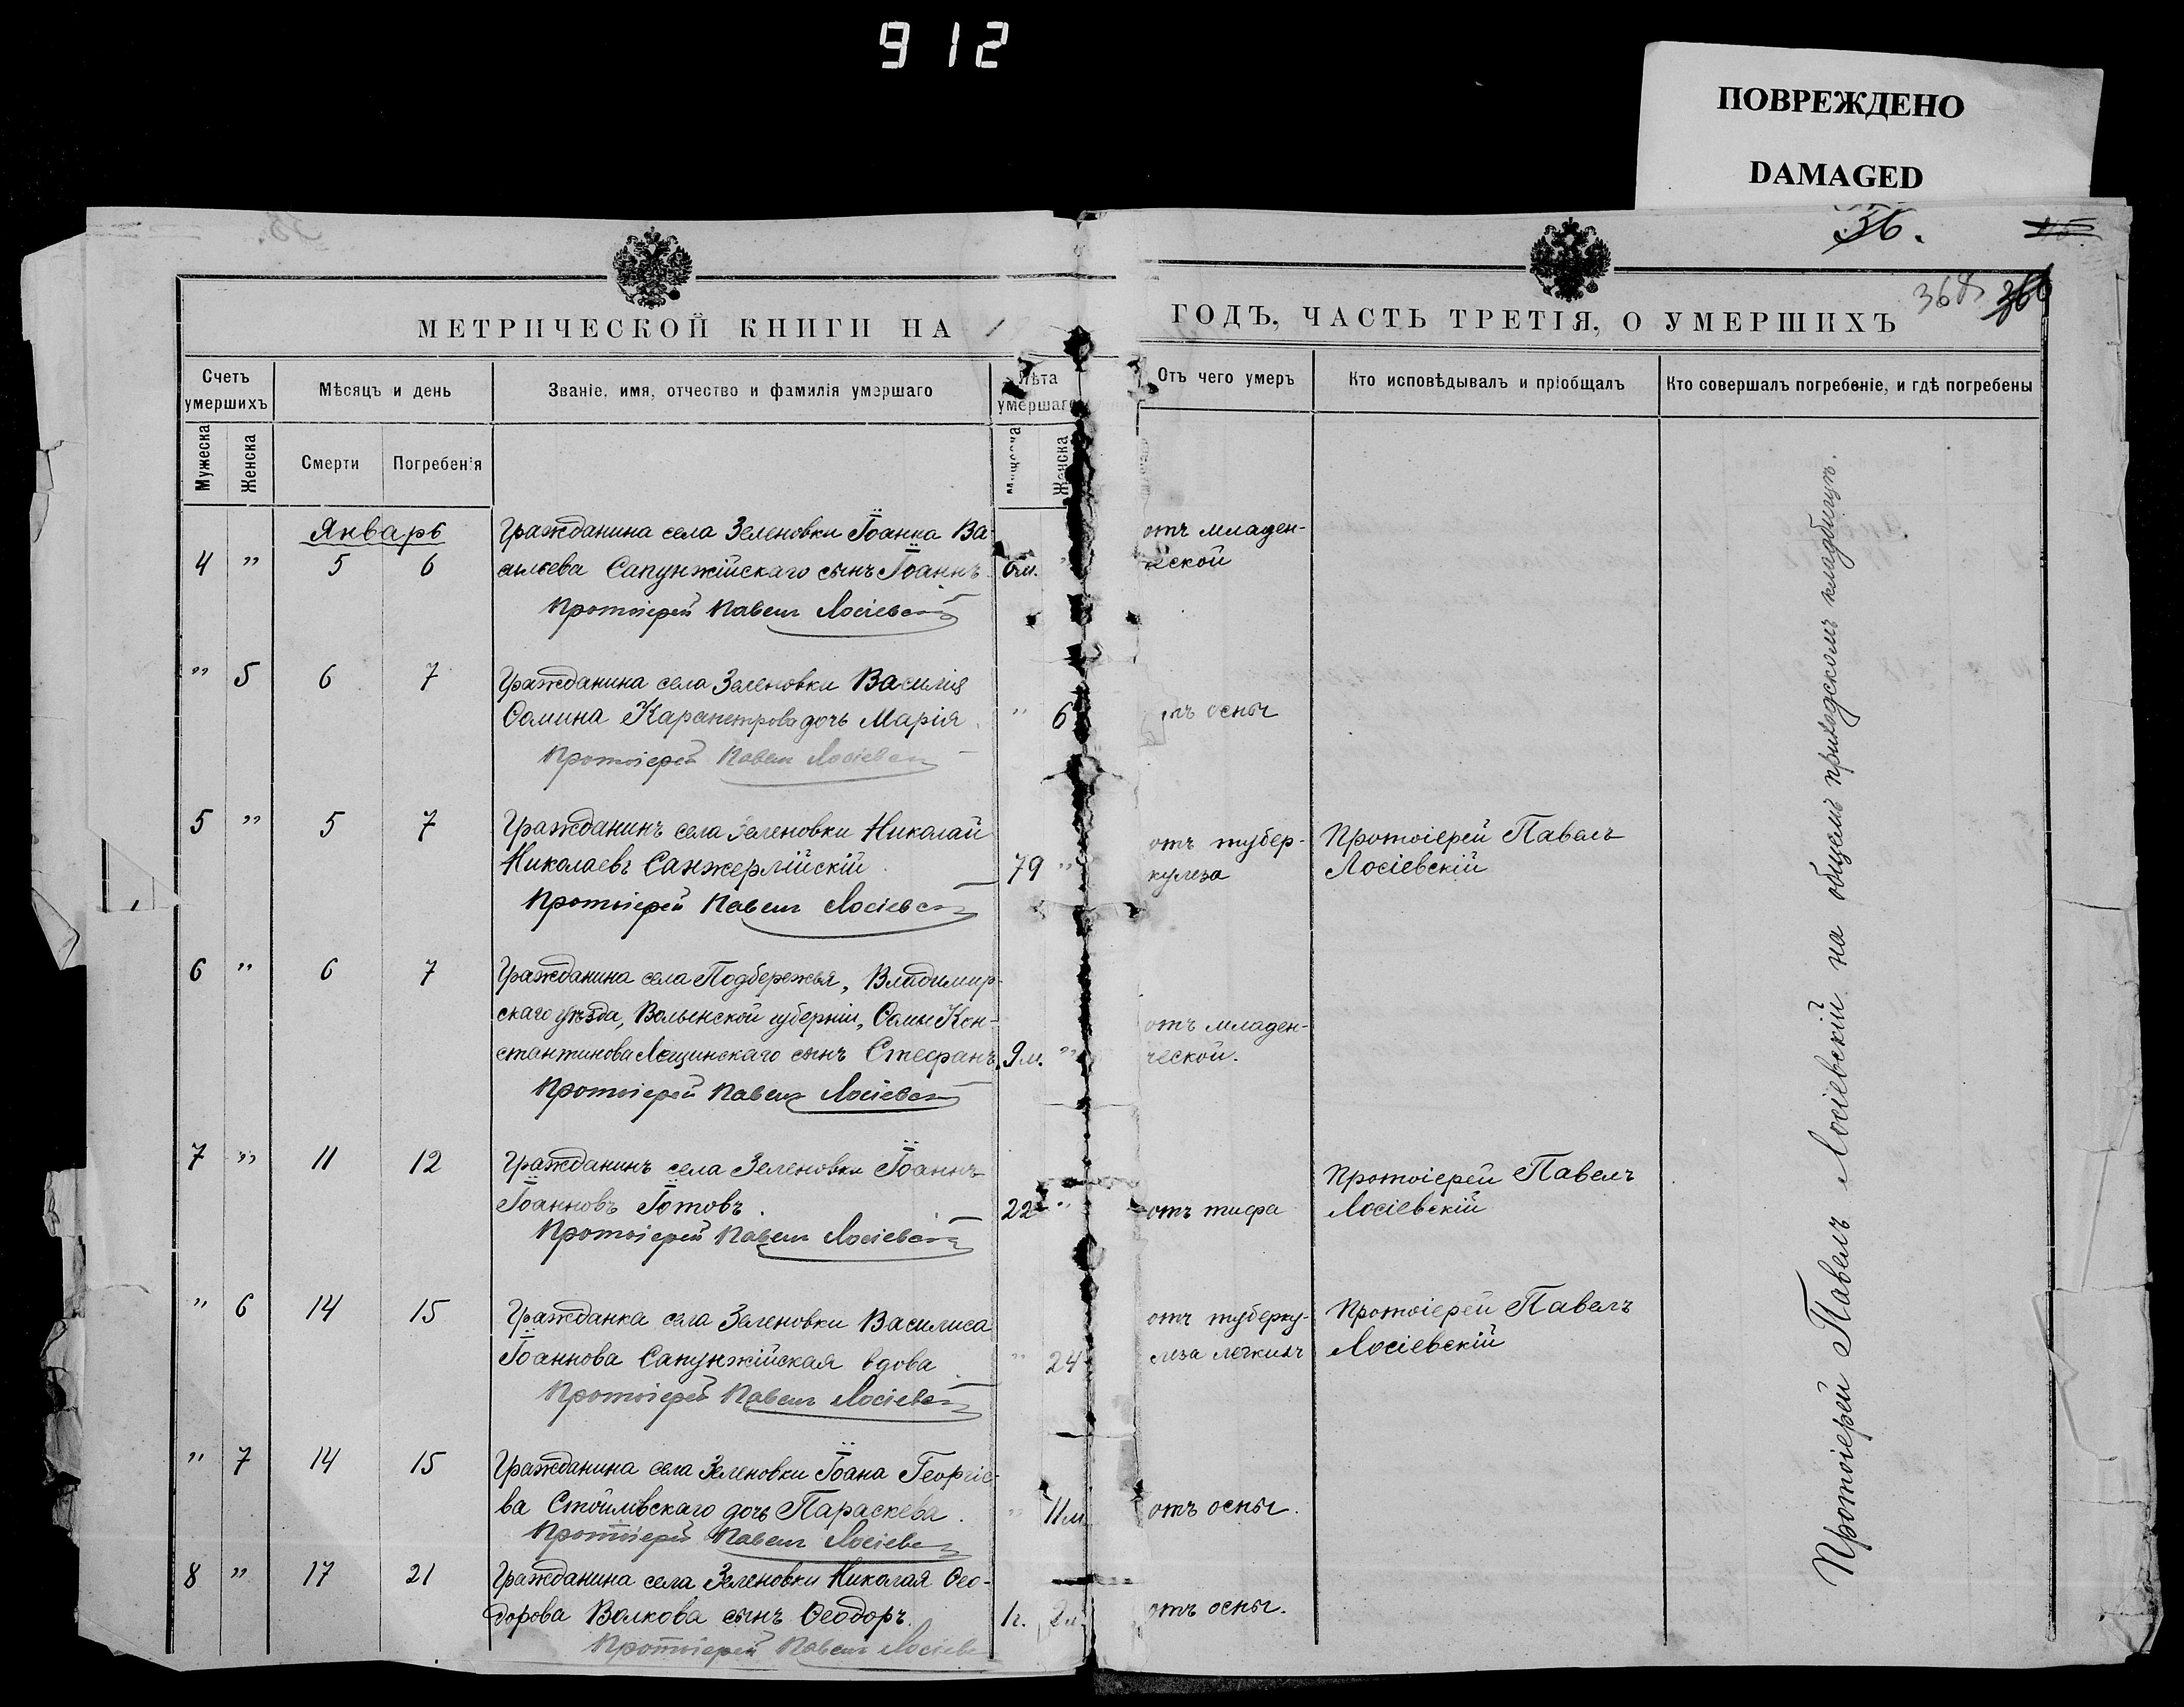 912
ПОВРЕЖДЕНО
DAMAGED
36.
368
МЕТРИЧЕСКОЙ КНИГИ НА 1
ГОДЪ, ЧАСТЬ ТРЕТІЯ, О УМЕРШИХЪ
Счетъ умершихъ
Мѣсяцъ и день
Званіе, имя, отчество и фамилія умершаго
Лѣта умершаго
Отъ чего умеръ
Кто исповѣдывалъ и пріобщалъ
Кто совершалъ погребеніе, и гдѣ погребены
Мужеска
Женска
Смерти
Погребенія
Мужеска
Женска
Январь
Гражданина села Зеленовки Іоанна Ва-
отъ младен-
4 " 5 6 сильева Сапунжійскаго сынъ Іоаннъ 6м. "
ческой
Протоіерей Павелъ Лосіевскій
" 5 6 7 Гражданина села Зеленовки Василія
Ѳомина Карапетрова дочь Марія. " 6 отъ оспы
Протоіерей Павелъ Лосіевскій
5 " 5 7 Гражданинъ села Зеленовки Николай
отъ тубер- Протоіерей Павелъ
Николаевъ Санжерлійскій. 79 "
кулеза Лосіевскій
Протоіерей Павелъ Лосіевскій
6 " 6 7 Гражданина села Подбережья, Владимир-
скаго уѣзда, Волынской губерніи, Ѳомы Кон-
отъ младен-
стантинова Лещинскаго сынъ Стефанъ. 9м. "
ческой.
Протоіерей Павелъ Лосіевскій
7 " 11 12 Гражданинъ села Зеленовки Іоаннъ
Протоіерей Павелъ
Іоанновъ Готовъ. 22 " отъ тифа Лосіевскій
Протоіерей Павелъ Лосіевскій
" 6 14 15 Гражданка села Зеленовки Василиса
отъ туберку- Протоіерей Павелъ
Іоаннова Сапунжійская вдова " 24 леза легкихъ Лосіевскій
Протоіерей Павелъ Лосіевскій
" 7 14 15 Гражданина села Зеленовки Іоана Георгіе-
ва Стоиловскаго дочь Параскева. " 11м. отъ оспы.
Протоіерей Павелъ Лосіевскій
8 " 17 21 Гражданина села Зеленовки Николая Ѳео-
дорова Волкова сынъ Ѳеодоръ. 1г. 2м. отъ оспы.
Протоіерей Павелъ Лосіевскій
Протоіерей Павелъ Лосіевскій на общемъ приходскомъ кладбищѣ.